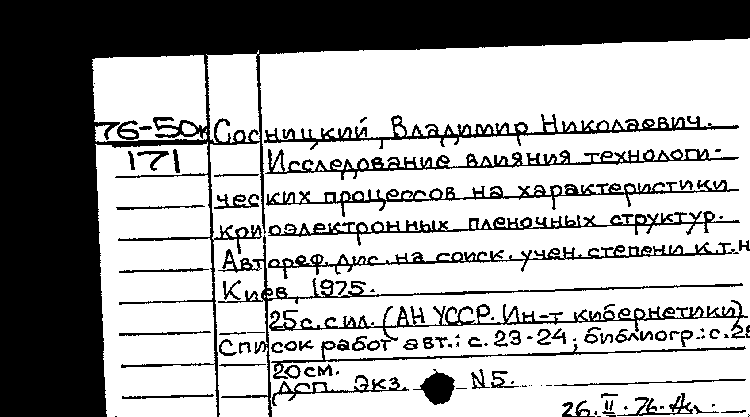 76-50к Сосницкий, Владимир Николаевич.
171 Исследование влияния технологи-
ческих процессов на характеристики
криоэлектронных пленочных структур.
Автореф. дис. на соиск. учен. степени к.т.н
Киев, 1975.
25 с. с ил. (АН УССР. Ин-т кибернетики)
Список работ авт.: с. 23-24; библиогр.: с.
20 см.
ДСП. Экз. N5.
26.II.76.